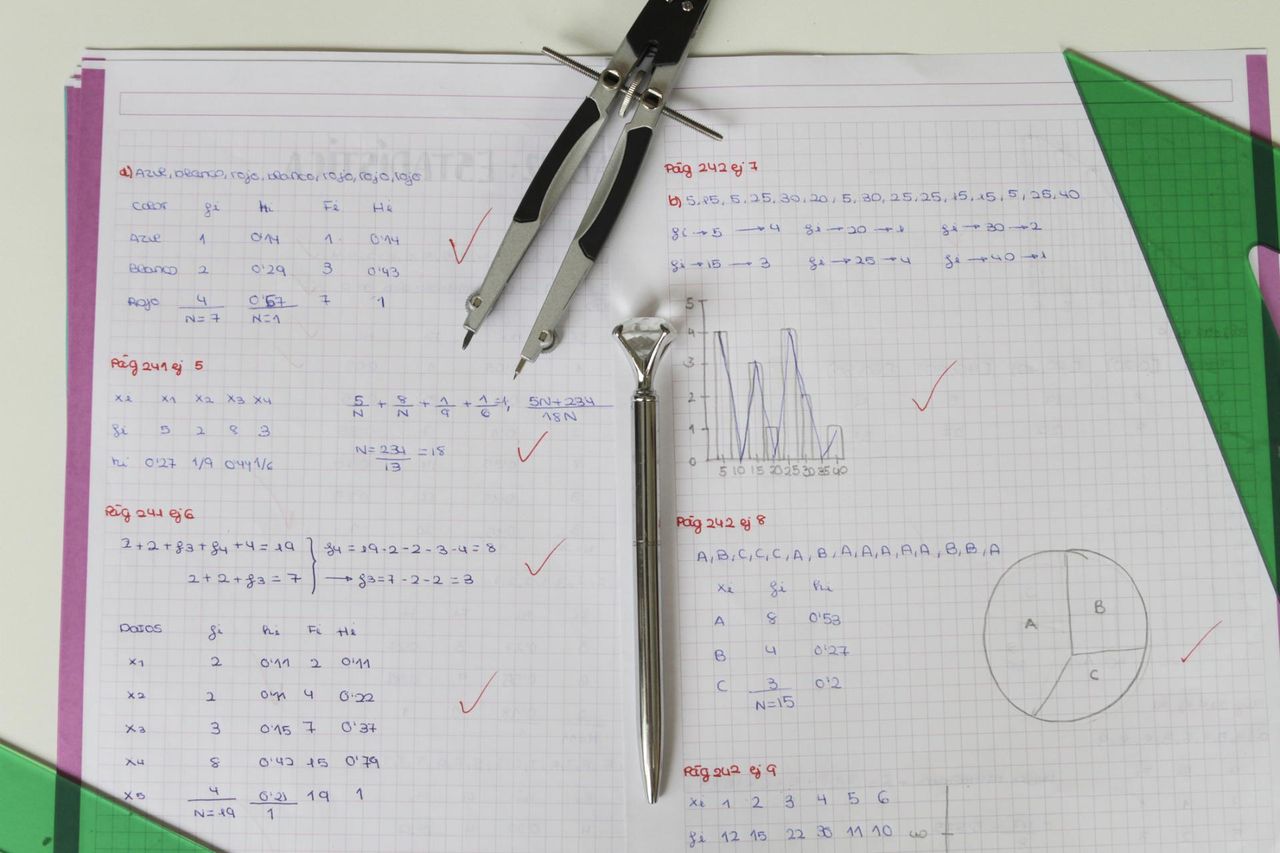 a) Azul, blanco, rojo, blanco, rojo, rojo, rojo
Color fi hi Fi Hi
Azul 1 0'14 1 0'14
Blanco 2 0'29 3 0'43
Rojo 4 0'57 7 1
N=7 N=1
Pág 241 ej 5
xi x1 x2 x3 x4
fi 5 2 8 3
hi 0'27 1/9 0'44 1/6
5/N + 8/N + 1/9 + 1/6 = 1, 5N+234/18N
N=234/13 = 18
Pág 241 ej 6
2+2+f3+f4+4=19 } f4=19-2-2-3-4=8
2+2+f3=7 → f3=7-2-2=3
DATOS fi hi Fi Hi
x1 2 0'11 2 0'11
x2 2 0'11 4 0'22
x3 3 0'15 7 0'37
x4 8 0'42 15 0'79
x5 4 0'21 19 1
N=19 1
Pág 242 ej 7
b) 5, 15, 5, 25, 30, 20, 5, 30, 25, 25, 15, 15, 5, 25, 40
fi → 5 → 4 fi → 20 → 1 fi → 30 → 2
fi → 15 → 3 fi → 25 → 4 fi → 40 → 1
5
4
3
2
1
0
5 10 15 20 25 30 35 40
Pág 242 ej 8
A, B, C, C, C, A, B, A, A, A, A, A, B, B, A
xi fi hi
A 8 0'53
B 4 0'27
C 3 0'2
N=15
A
B
C
Pág 242 ej 9
xi 1 2 3 4 5 6
fi 12 15 22 30 11 10
40